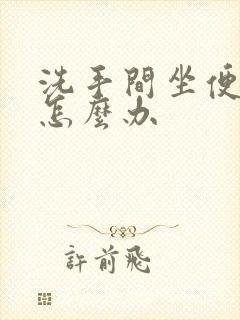 洗手間坐便
怎麼办
許前飛